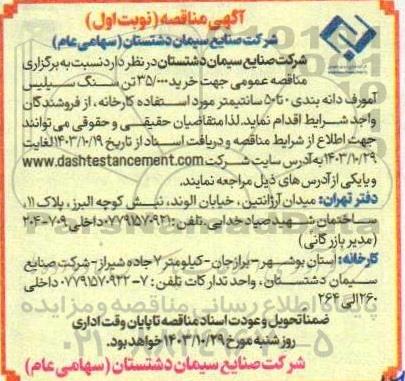 آگهی مناقصه (نوبت اول)
شرکت صنایع سیمان دشتستان (سهامی عام)
شرکت صنایع سیمان دشتستان در نظر دارد نسبت به برگزاری
مناقصه عمومی جهت خرید ۳۵/۰۰۰ تن سنگ سیلیس
آمورف دانه بندی ۰ تا ۵۰ سانتیمتر مورد استفاده کارخانه، از فروشندگان
واجد شرایط اقدام نماید. لذا متقاضیان حقیقی و حقوقی می توانند
جهت اطلاع از شرایط مناقصه و دریافت اسناد از تاریخ ۱۴۰۳/۱۰/۱۹ لغایت
۱۴۰۳/۱۰/۲۹ به آدرس سایت شرکت www.dashtestancement.com
و یا یکی از آدرس های ذیل مراجعه نمایند.
دفتر تهران: میدان آرژانتین، خیابان الوند، نبش کوچه البرز، پلاک ۱۱،
ساختمان شهید صیاد خدایی. تلفن: ۰۷۷۹۱۵۷۰۹۲۱ داخلی ۷۰۹-۲۰۴
(مدیر بازرگانی)
کارخانه: استان بوشهر - برازجان - کیلومتر ۷ جاده شیراز - شرکت صنایع
سیمان دشتستان، واحد تدارکات تلفن: ۷-۰۷۷۹۱۵۷۰۹۲۲ داخلی
۲۶۰ الی ۲۶۲
ضمنا تحویل و عودت اسناد مناقصه تا پایان وقت اداری
روز شنبه مورخ ۱۴۰۳/۱۰/۲۹ خواهد بود.
شرکت صنایع سیمان دشتستان (سهامی عام)